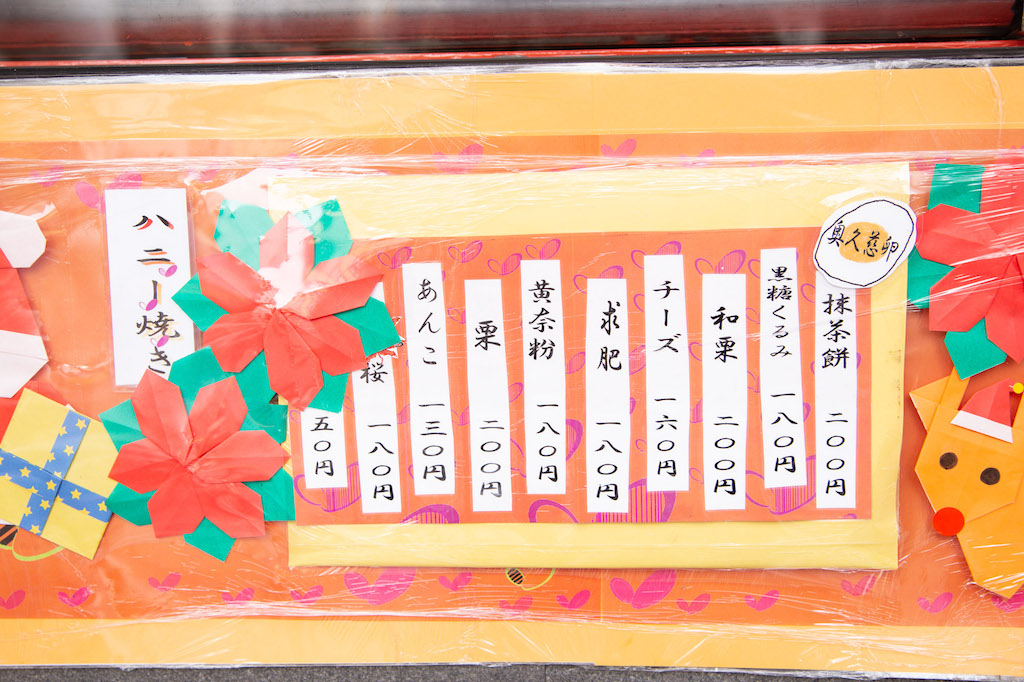 奥久慈卵
抹茶餅 二〇〇円
黒糖くるみ 一八〇円
和栗 二〇〇円
チーズ 一六〇円
求肥 一八〇円
黄奈粉 一八〇円
栗 二〇〇円
あんこ 一三〇円
桜 一八〇円
五〇円
ハニー焼き